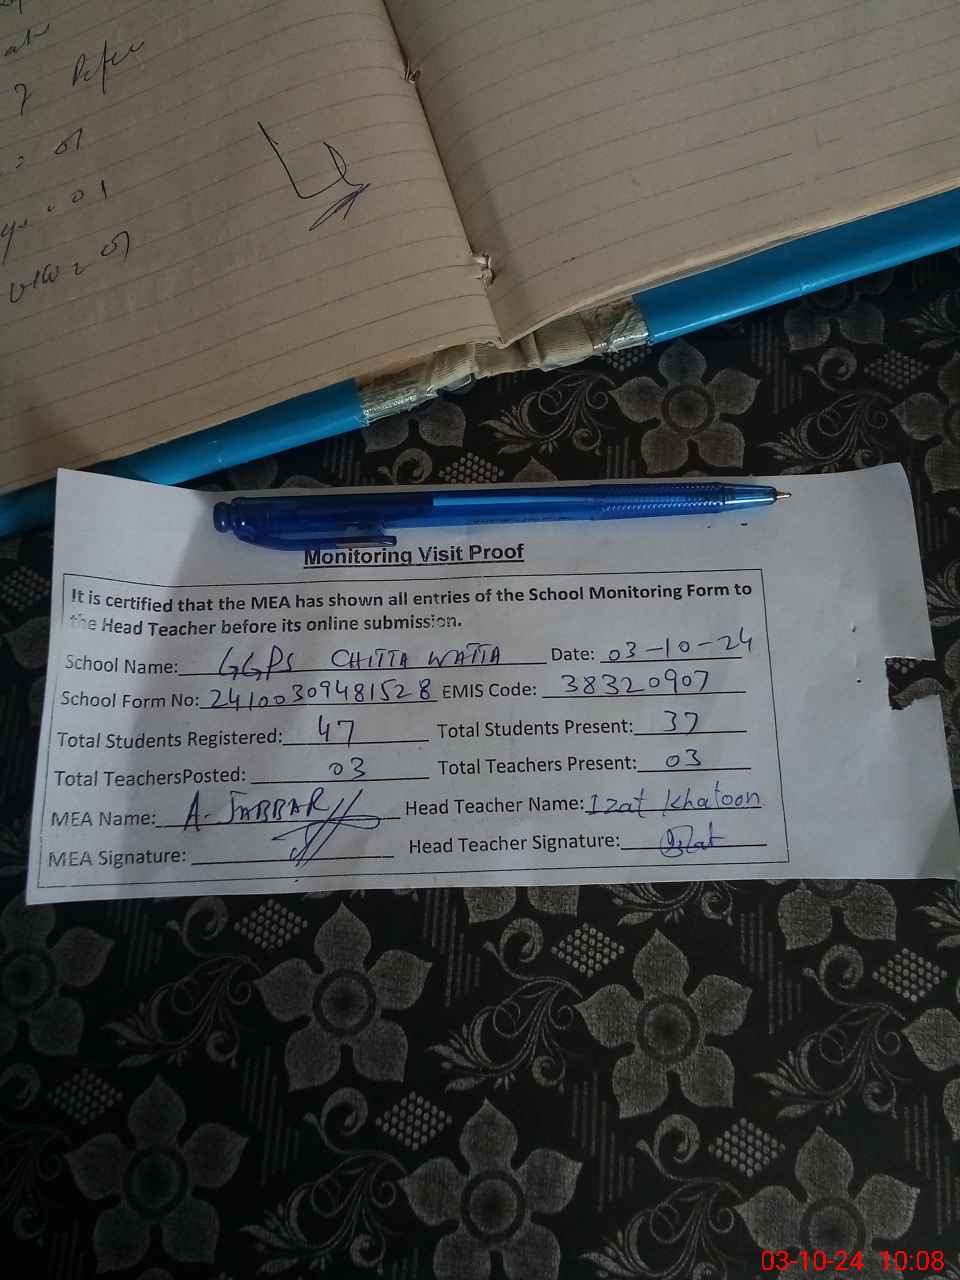 = 01
= 01
Monitoring Visit Proof
It is certified that the MEA has shown all entries of the School Monitoring Form to
the Head Teacher before its online submission.
School Name: GGPS CHITTA WATTA Date: 03-10-24
School Form No: 24100309481528 EMIS Code: 38320907
Total Students Registered: 47 Total Students Present: 37
Total TeachersPosted: 03 Total Teachers Present: 03
MEA Name: A. JABBAR Head Teacher Name: Izat Khatoon
MEA Signature: Head Teacher Signature: Izat
03-10-24 10:08